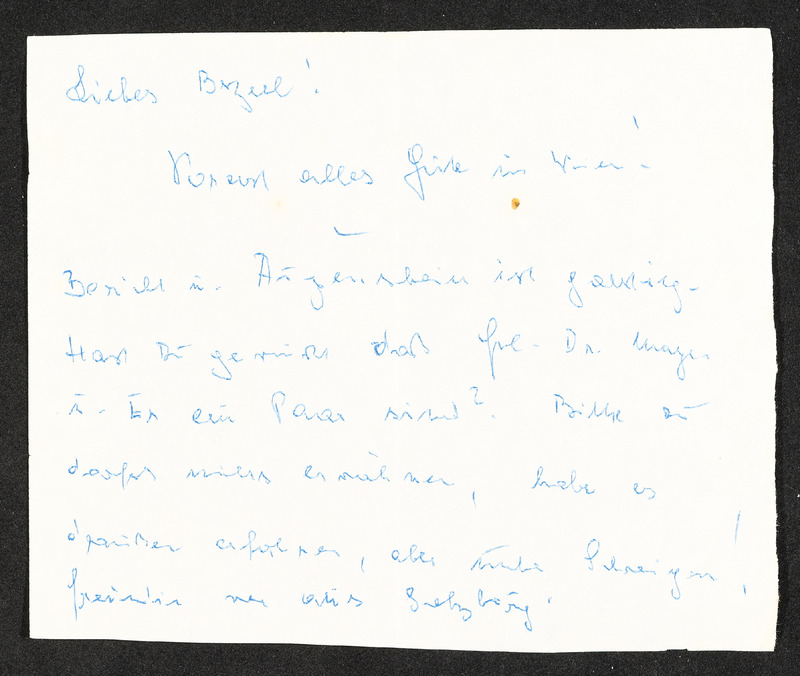 Liebes Burzerl!
Vorerst alles Gute in Wien!
Bericht u. Augenschein ist gaustig.
Hast Du gewußt daß Frl. Dr. Mayer
u. Er ein Paar sind? Bitte Du
darfst nichts erwähnen, habe es
draußen erfahren, aber unter Schweigen!
Freundin war aus Salzburg.